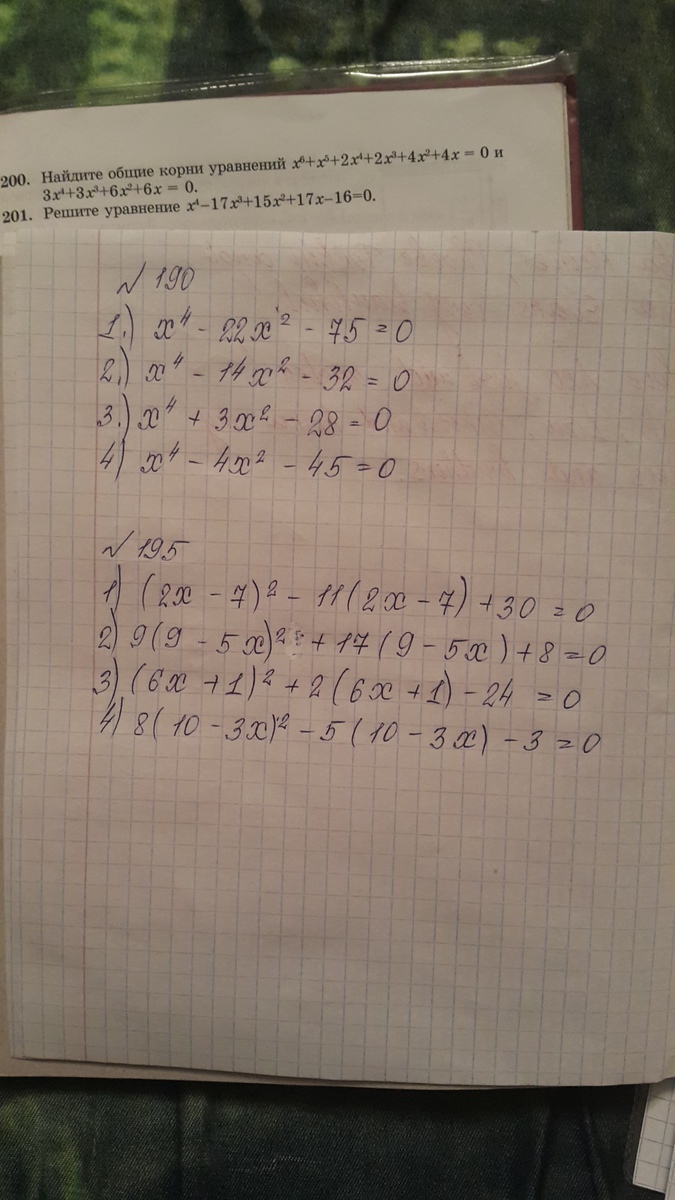 200. Найдите общие корни уравнений x⁶+x⁵+2x⁴+2x³+4x²+4x = 0 и
3x⁴+3x³+6x²+6x = 0.
201. Решите уравнение x⁴–17x³+15x²+17x–16=0.
№ 190
1.) x⁴ - 22x² - 75 = 0
2.) x⁴ - 14x² - 32 = 0
3.) x⁴ + 3x² - 28 = 0
4) x⁴ - 4x² - 45 = 0
№ 195
1) (2x - 7)² - 11(2x - 7) + 30 = 0
2) 9(9 - 5x)² + 17(9 - 5x) + 8 = 0
3) (6x + 1)² + 2(6x + 1) - 24 = 0
4) 8(10 - 3x)² - 5(10 - 3x) - 3 = 0